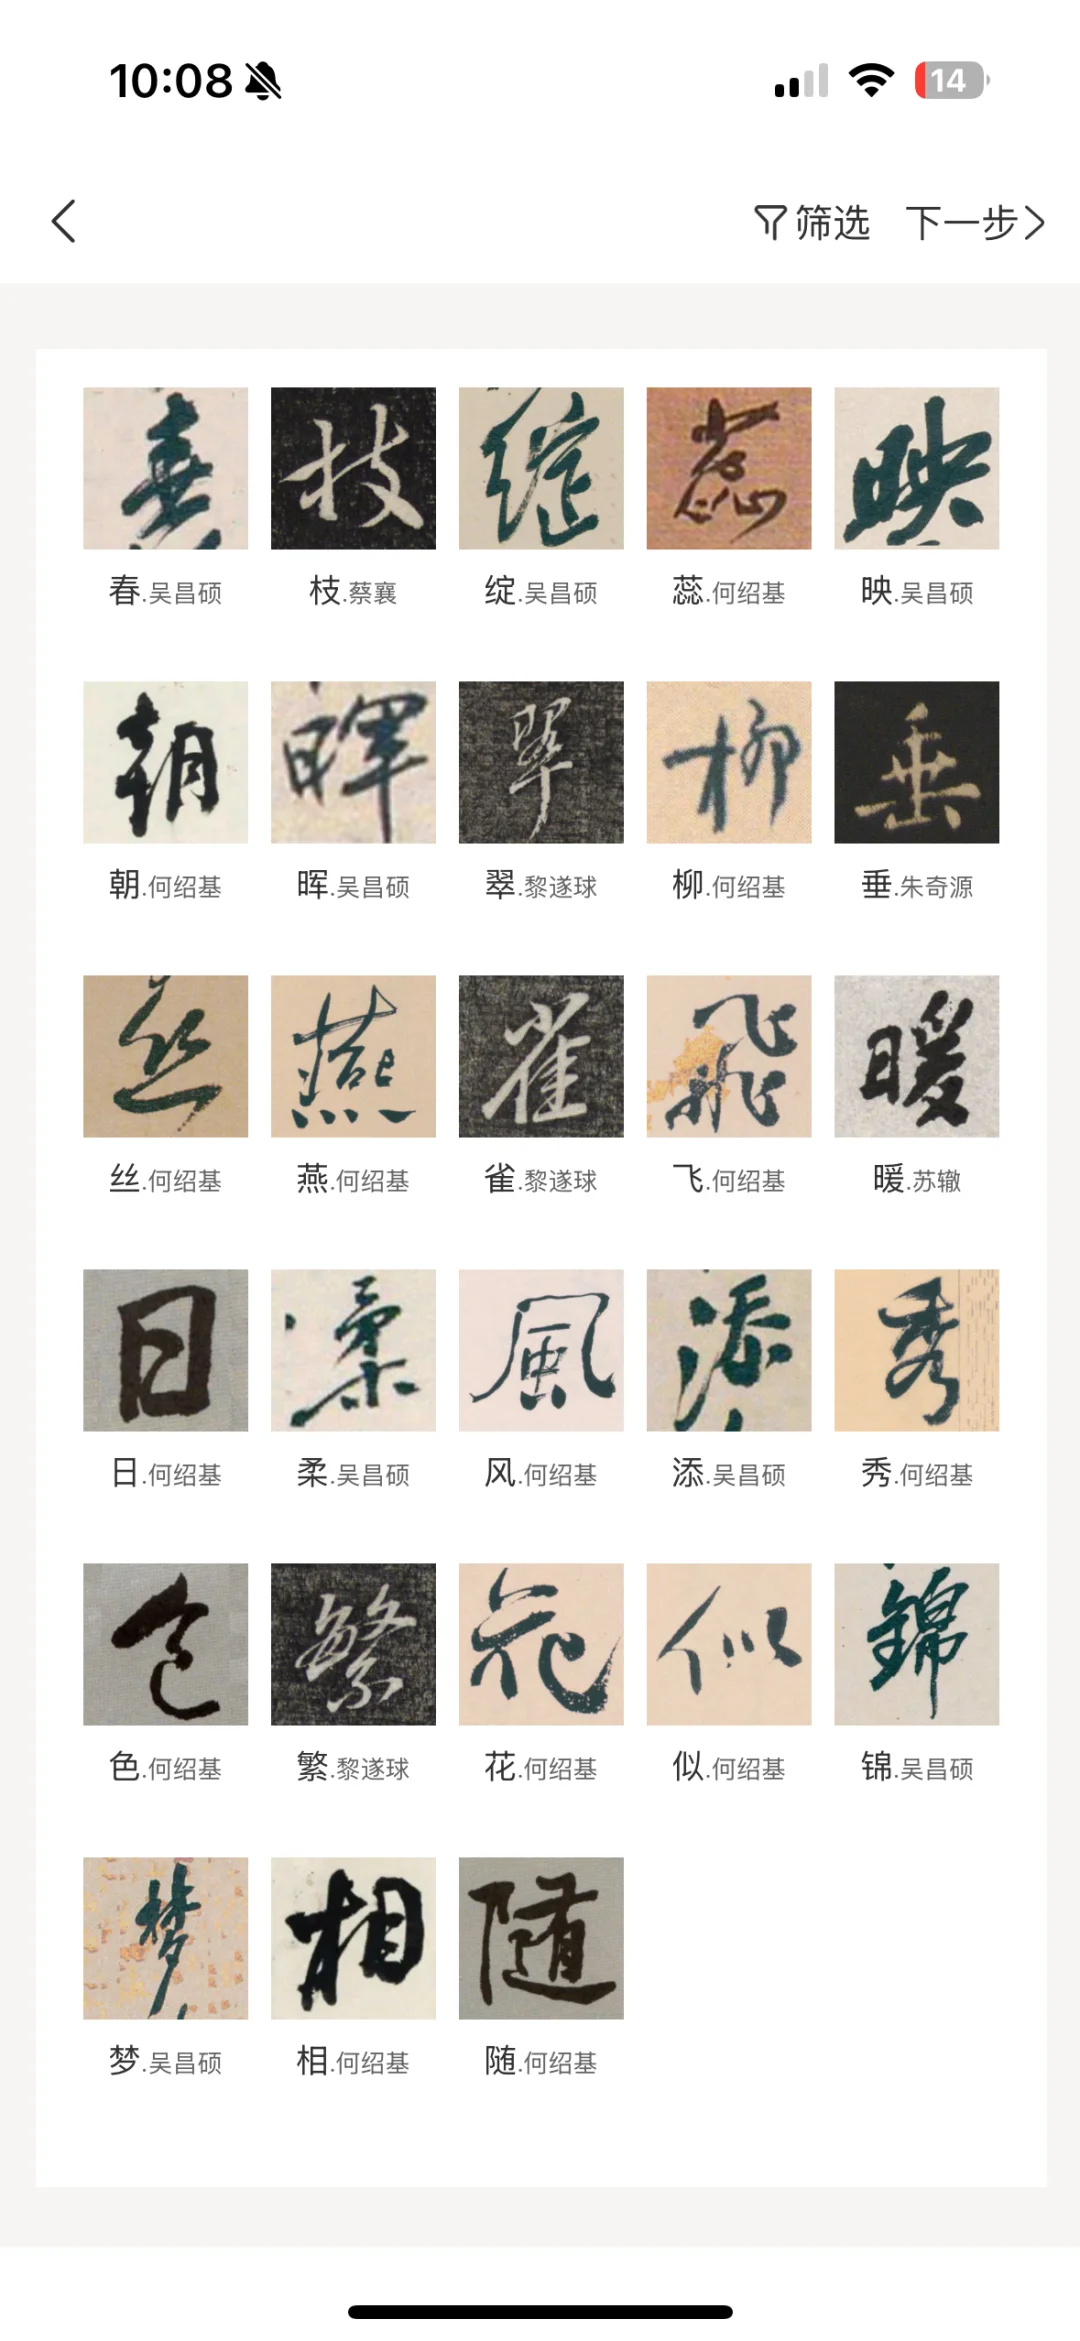 10:08
14
筛选 下一步
春 枝 绽 蕊 映
春.吴昌硕 枝.蔡襄 绽.吴昌硕 蕊.何绍基 映.吴昌硕
朝 暉 翠 柳 垂
朝.何绍基 晖.吴昌硕 翠.黎遂球 柳.何绍基 垂.朱奇源
丝 燕 雀 飞飛 暖
丝.何绍基 燕.何绍基 雀.黎遂球 飞.何绍基 暖.苏辙
日 柔 風 添 秀
日.何绍基 柔.吴昌硕 风.何绍基 添.吴昌硕 秀.何绍基
色 繁 花 似 錦
色.何绍基 繁.黎遂球 花.何绍基 似.何绍基 锦.吴昌硕
梦 相 随
梦.吴昌硕 相.何绍基 随.何绍基